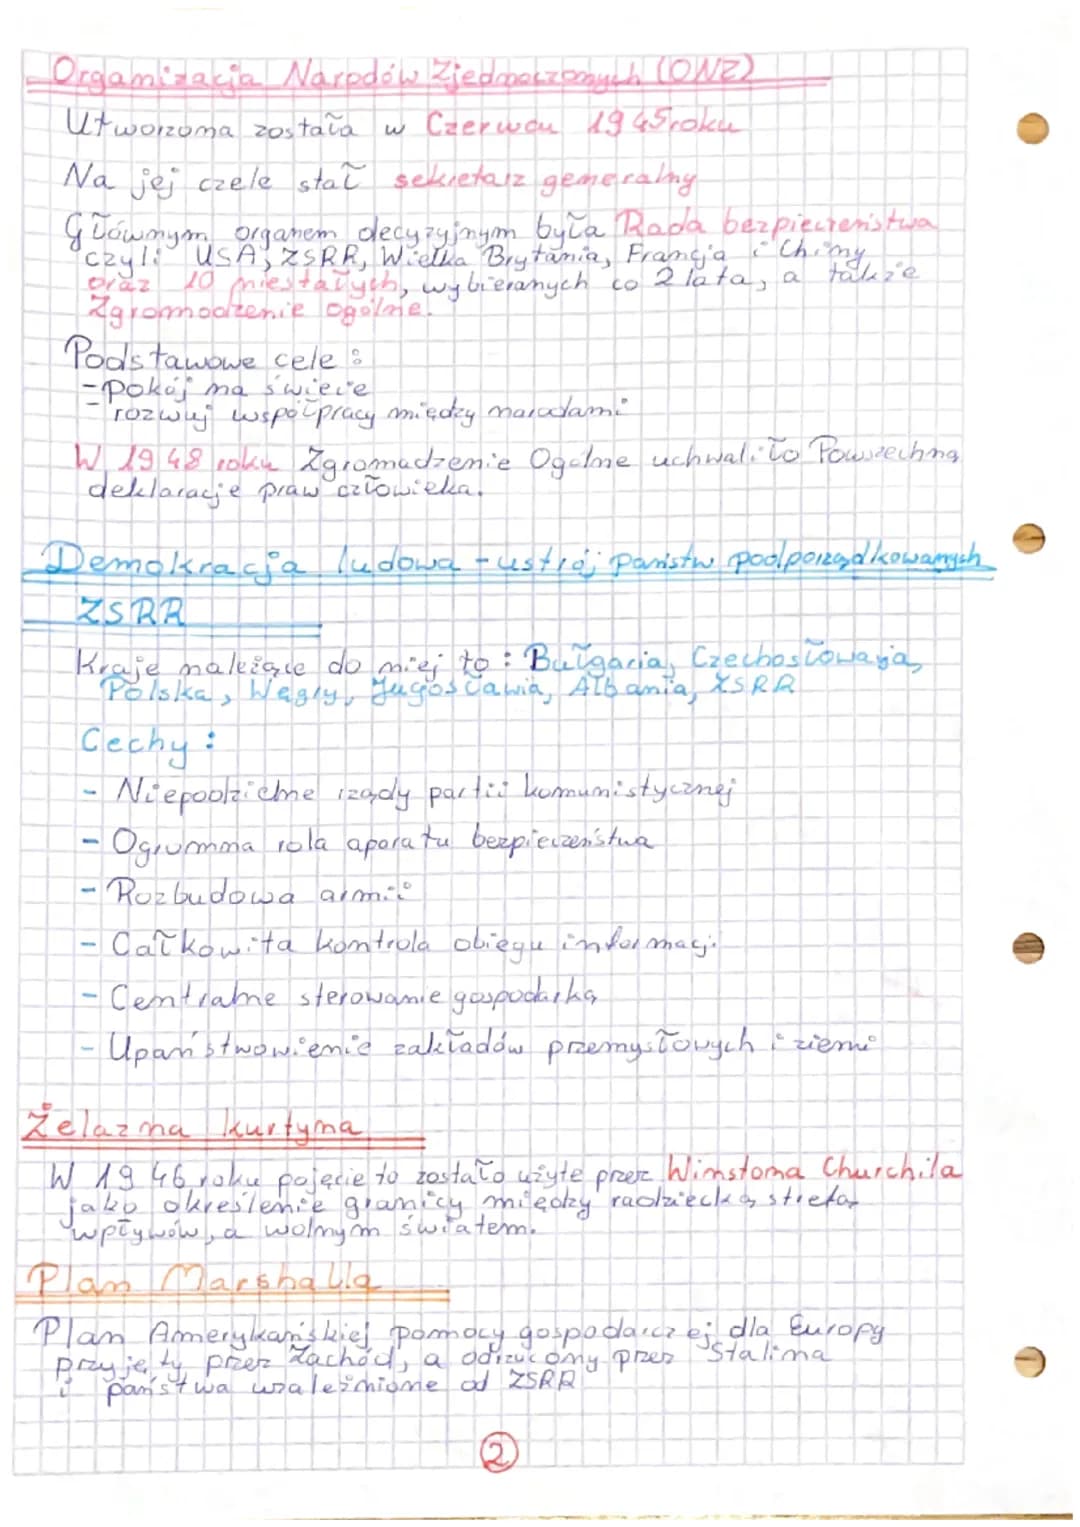 Organizacja Narodów Zjednoczonych (ONZ)
Utworzona została w Czerwcu 1945 roku
Na jej czele stał sekretarz generalny
Głównym organem decyzyjnym była Rada bezpieczeństwa
czyli USA, ZSRR, Wielka Brytania, Francja i Chiny
oraz 10 niestałych, wybieranych co 2 lata, a także
Zgromadzenie ogólne.
Podstawowe cele :
- pokój na świecie
- rozwuj współpracy między narodami
W 1948 roku Zgromadzenie Ogólne uchwaliło Powszechną
deklaracje praw człowieka.
Demokracja ludowa - ustrój państw podporządkowanych
ZSRR
Kraje należące do niej to : Bułgaria, Czechosłowacja,
Polska, Węgry, Jugosławia, Albania, ZSRR
Cechy :
- Niepodzielne rządy partii komunistycznej
- Ogromna rola aparatu bezpieczeństwa
- Rozbudowa armii
- Całkowita kontrola obiegu informacji
- Centralne sterowanie gospodarką
- Upaństwowienie zakładów przemysłowych i ziemi
Żelazna kurtyna
W 1946 roku pojęcie to zostało użyte przez Winstona Churchila
jako określenie granicy między radziecką strefą
wpływów, a wolnym światem.
Plan Marshalla
Plan Amerykańskiej pomocy gospodarczej dla Europy
przyjęty przez Zachód, a odrzucony przez Stalina
i państwa uzależnione od ZSRR
2